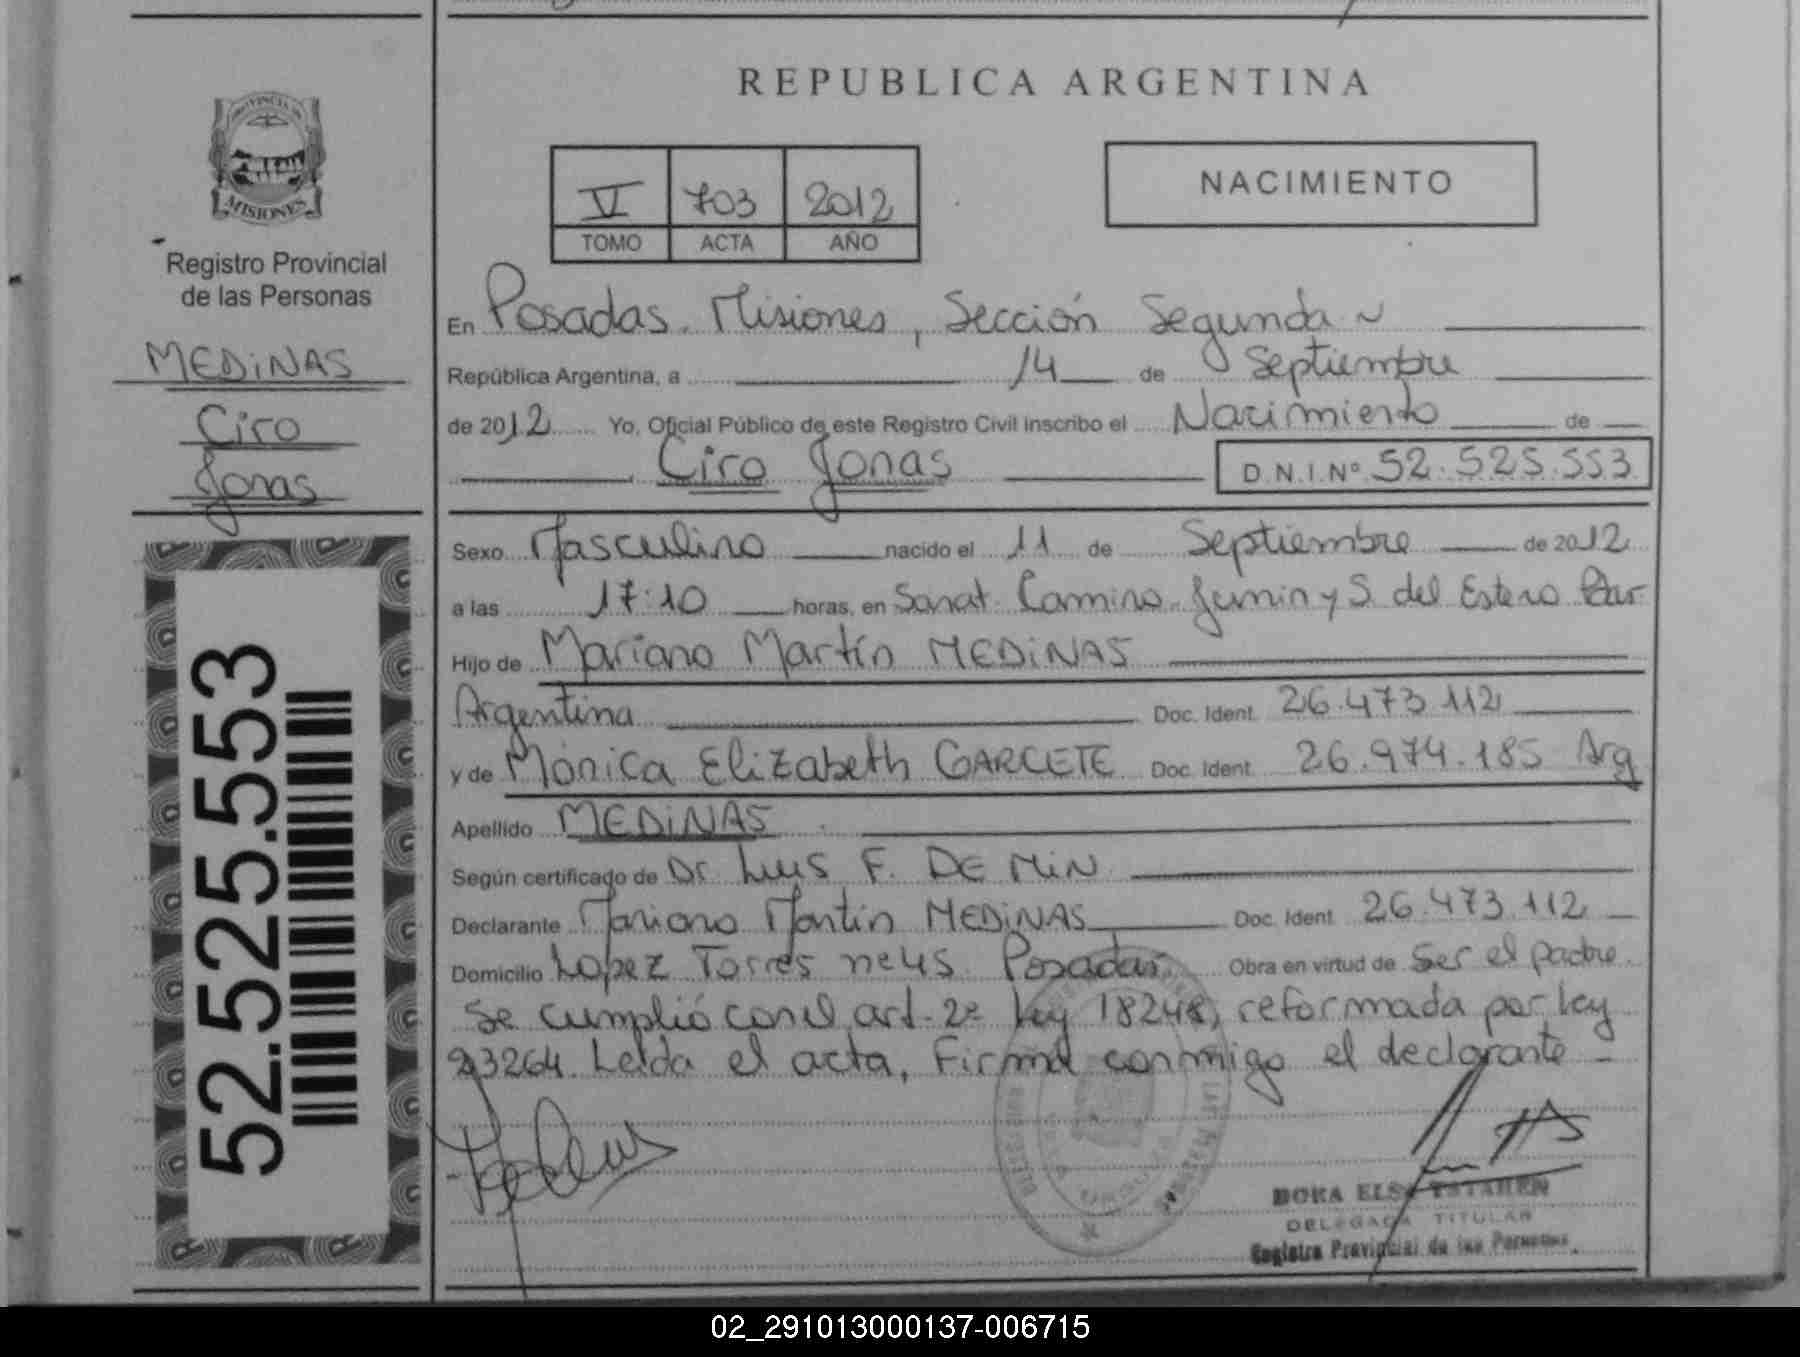 REPUBLICA ARGENTINA
PROVINCIA DE
MISIONES
Registro Provincial
de las Personas
MEDiNAS
Ciro
Jonas
52.525.553
V 703 2012
TOMO ACTA AÑO
NACIMIENTO
En Posadas. Misiones, Sección Segunda
República Argentina, a 14 de Septiembre
de 2012 Yo, Oficial Público de este Registro Civil inscribo el Nacimiento de
Ciro Jonas D.N.I.Nº 52.525.553
Sexo Masculino nacido el 11 de Septiembre de 2012
a las 17:10 horas, en Sanat. Camino. Junin y S. del Estero
Hijo de Mariano Martín MEDiNAS
Argentina Doc. Ident. 26.473.112
y de Mónica Elizabeth GARCETE Doc. Ident. 26.974.185 Arg
Apellido MEDiNAS
Según certificado de Dr Luis F. DE MiN
Declarante Mariano Martín MEDiNAS Doc. Ident. 26.473.112
Domicilio Lopez Torres Posadas Obra en virtud de Ser el padre.
Se cumplió con el art. 2º Ley 18248, reformada por ley
23264. Leída el acta, Firma conmigo el declarante
DELEGADA TITULAR
Registro Provincial de las Personas
02_291013000137-006715